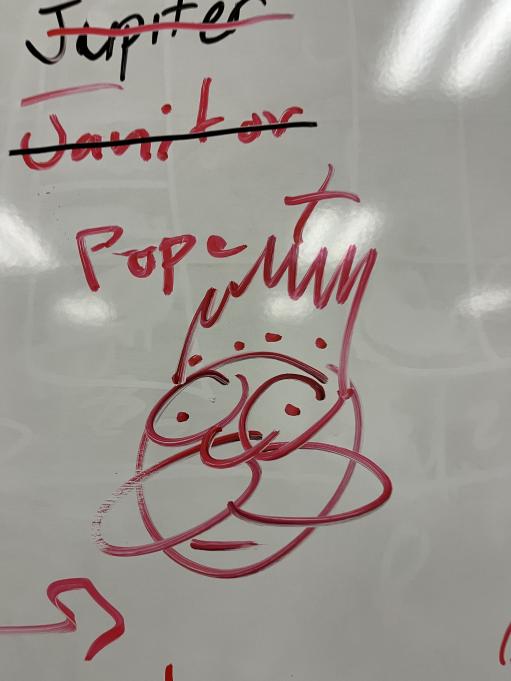 Jupiter
Janitor
Pope